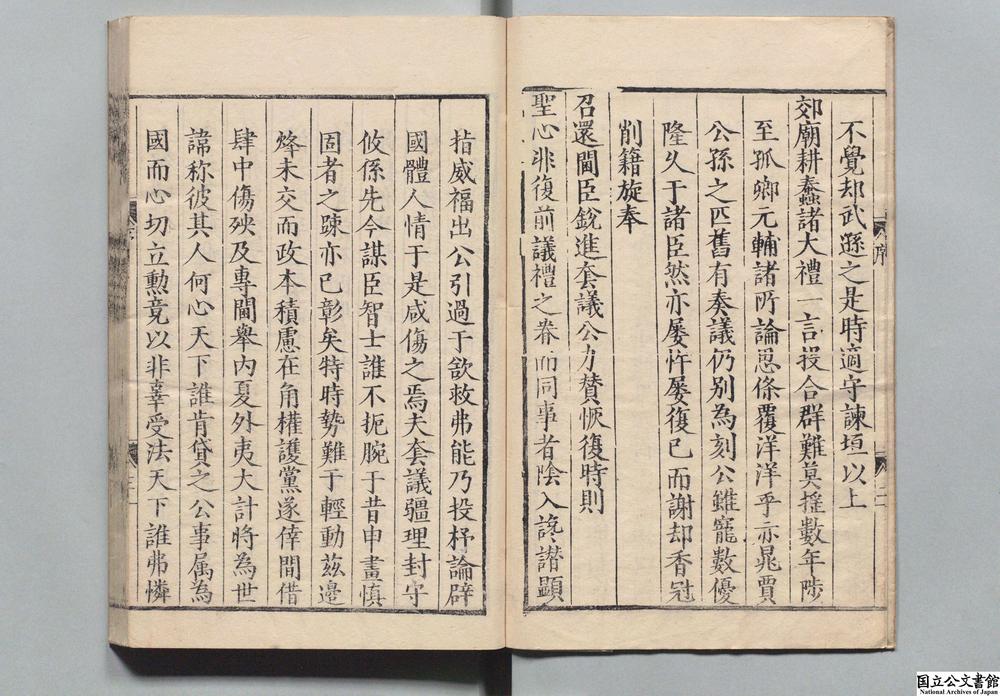 不覺却武遜之是時適守諫垣以上
郊廟耕蠶諸大禮一言投合群難莫搖數年陟
至孤卿元輔諸所論思條覆洋洋乎亦晁賈
公孫之匹舊有奏議仍別為刻公雖寵數優
隆久于諸臣然亦屢忤屢復已而謝却香冠
削籍旋奉
召還閫臣銳進套議公力賛恢復時則
聖心非復前議禮之眷而同事者陰入讒譖顯
指威福出公引過于欲救弗能乃投杼論辟
國體人情于是咸傷之焉夫套議疆理封守
攸係先今謀臣智士誰不扼腕于昔申畫慎
固者之踈亦已彰矣特時勢難于輕動茲邊
烽未交而政本積慮在角權護黨遂倖間借
肆中傷殃及專閫舉內夏外夷大計將為世
諱称彼其人何心天下誰肯貸之公事属為
國而心切立勳竟以非辜受法天下誰弗憐
序
二
序
三
国立公文書館
National Archives of Japan